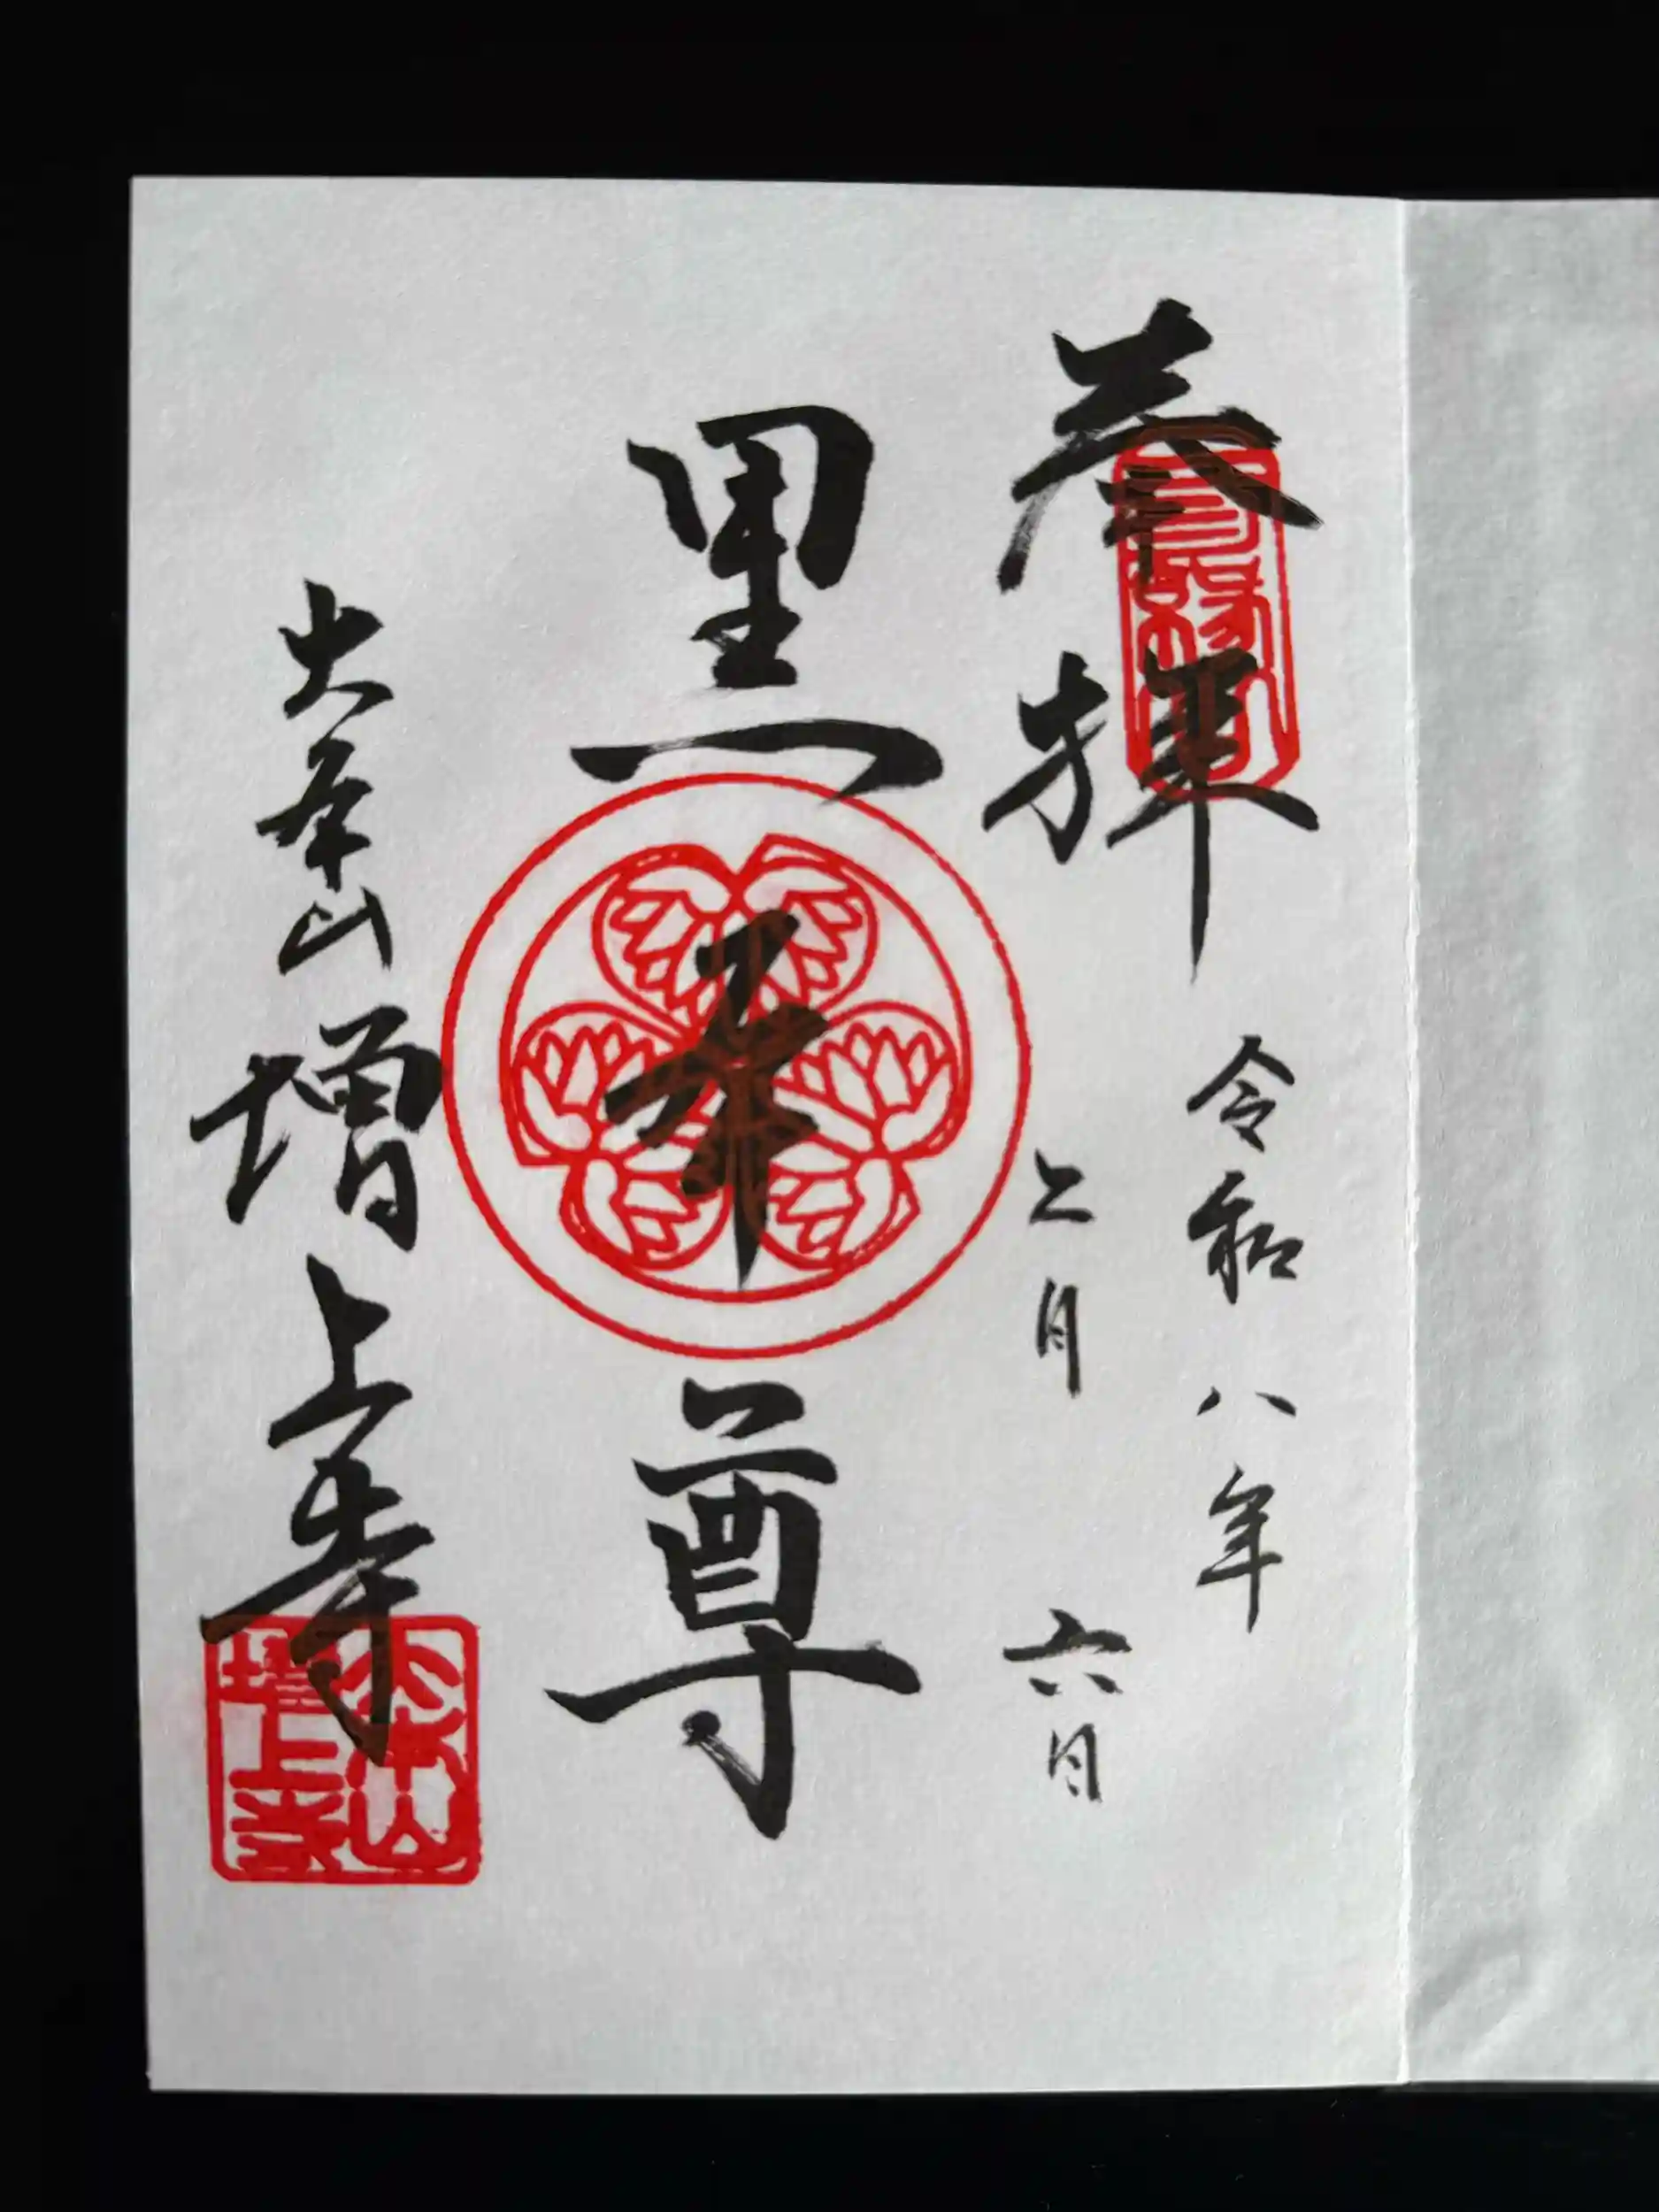 三縁山
奉拝
令和八年
二月六日
黒本尊
大本山増上寺
大本山
増上寺